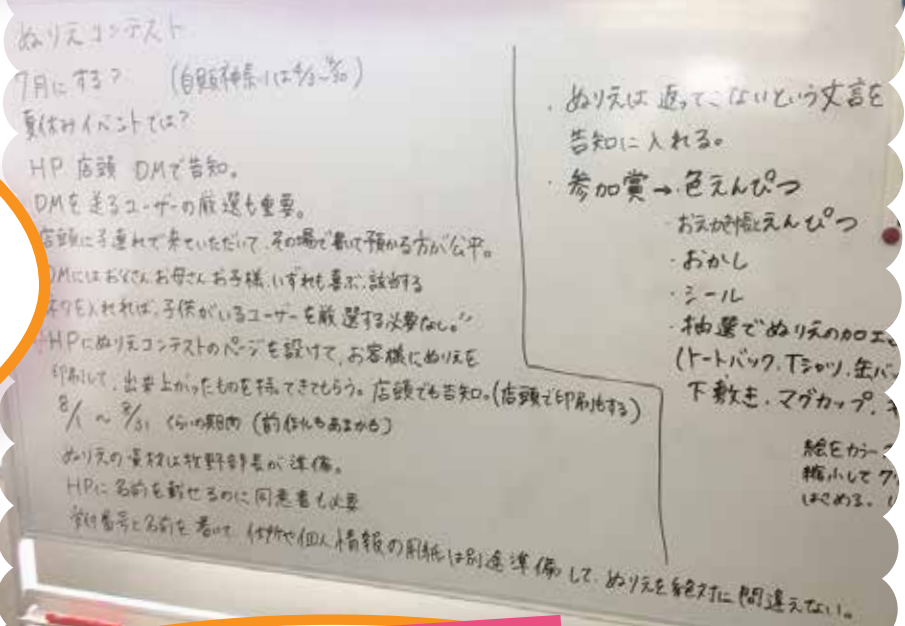 ぬりえコンテスト
7月にする?
夏休みイベントでは?
HP 店頭 DMで告知。
DMを送るユーザーの厳選も重要。
店頭に子連れで来ていただいて、その場で書いて預かる方が公平。
DMにはお父さんお母さんお子様、いずれも喜ぶ、該当する
を入れれば、子供がいるユーザーを厳選する必要なし。
HPにぬりえコンテストのページを設けて、お客様にぬりえを
印刷して、出来上がったものを持ってきてもらう。店頭でも告知。(店頭で印刷もする)
8/1 ~ 8/31 くらいの期間
ぬりえの素材は牧野部長が準備。
HPに名前を載せるのに同意書も必要
受付番号と名前を書いて 住所や個人情報の用紙は別途準備して、ぬりえを絶対に間違えない。
・ぬりえは返ってこないという文言を
告知に入れる。
・参加賞→色えんぴつ
・おえかき帳とえんぴつ
・おかし
・シール
・抽選でぬりえのカロエ
(トートバック、Tシャツ、缶バ
下敷き、マグカップ、
絵をカラー
縮小して
はじめる。